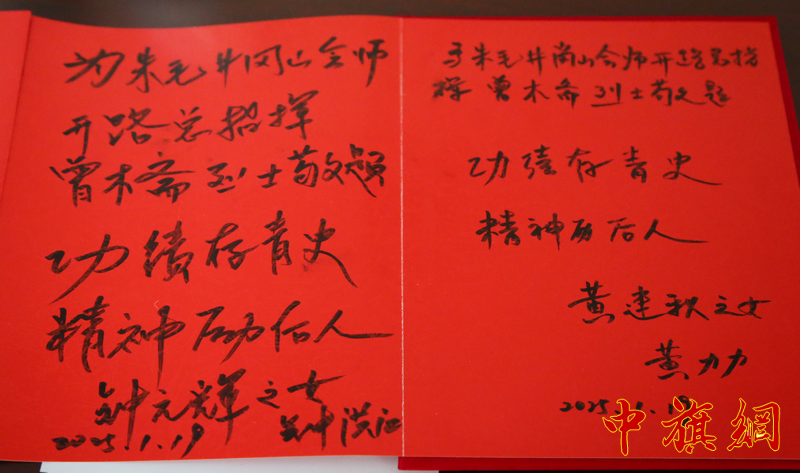 为朱毛井冈山会师
开路总指挥
曾木斋烈士敬题
功绩存青史
精神励后人
钟元辉之女
2025.1.19
为朱毛井岗山会师开路总指
挥 曾木斋烈士敬题
功绩存青史
精神励后人
黄建秋之女
黄力力
2025.1.19
中旗網